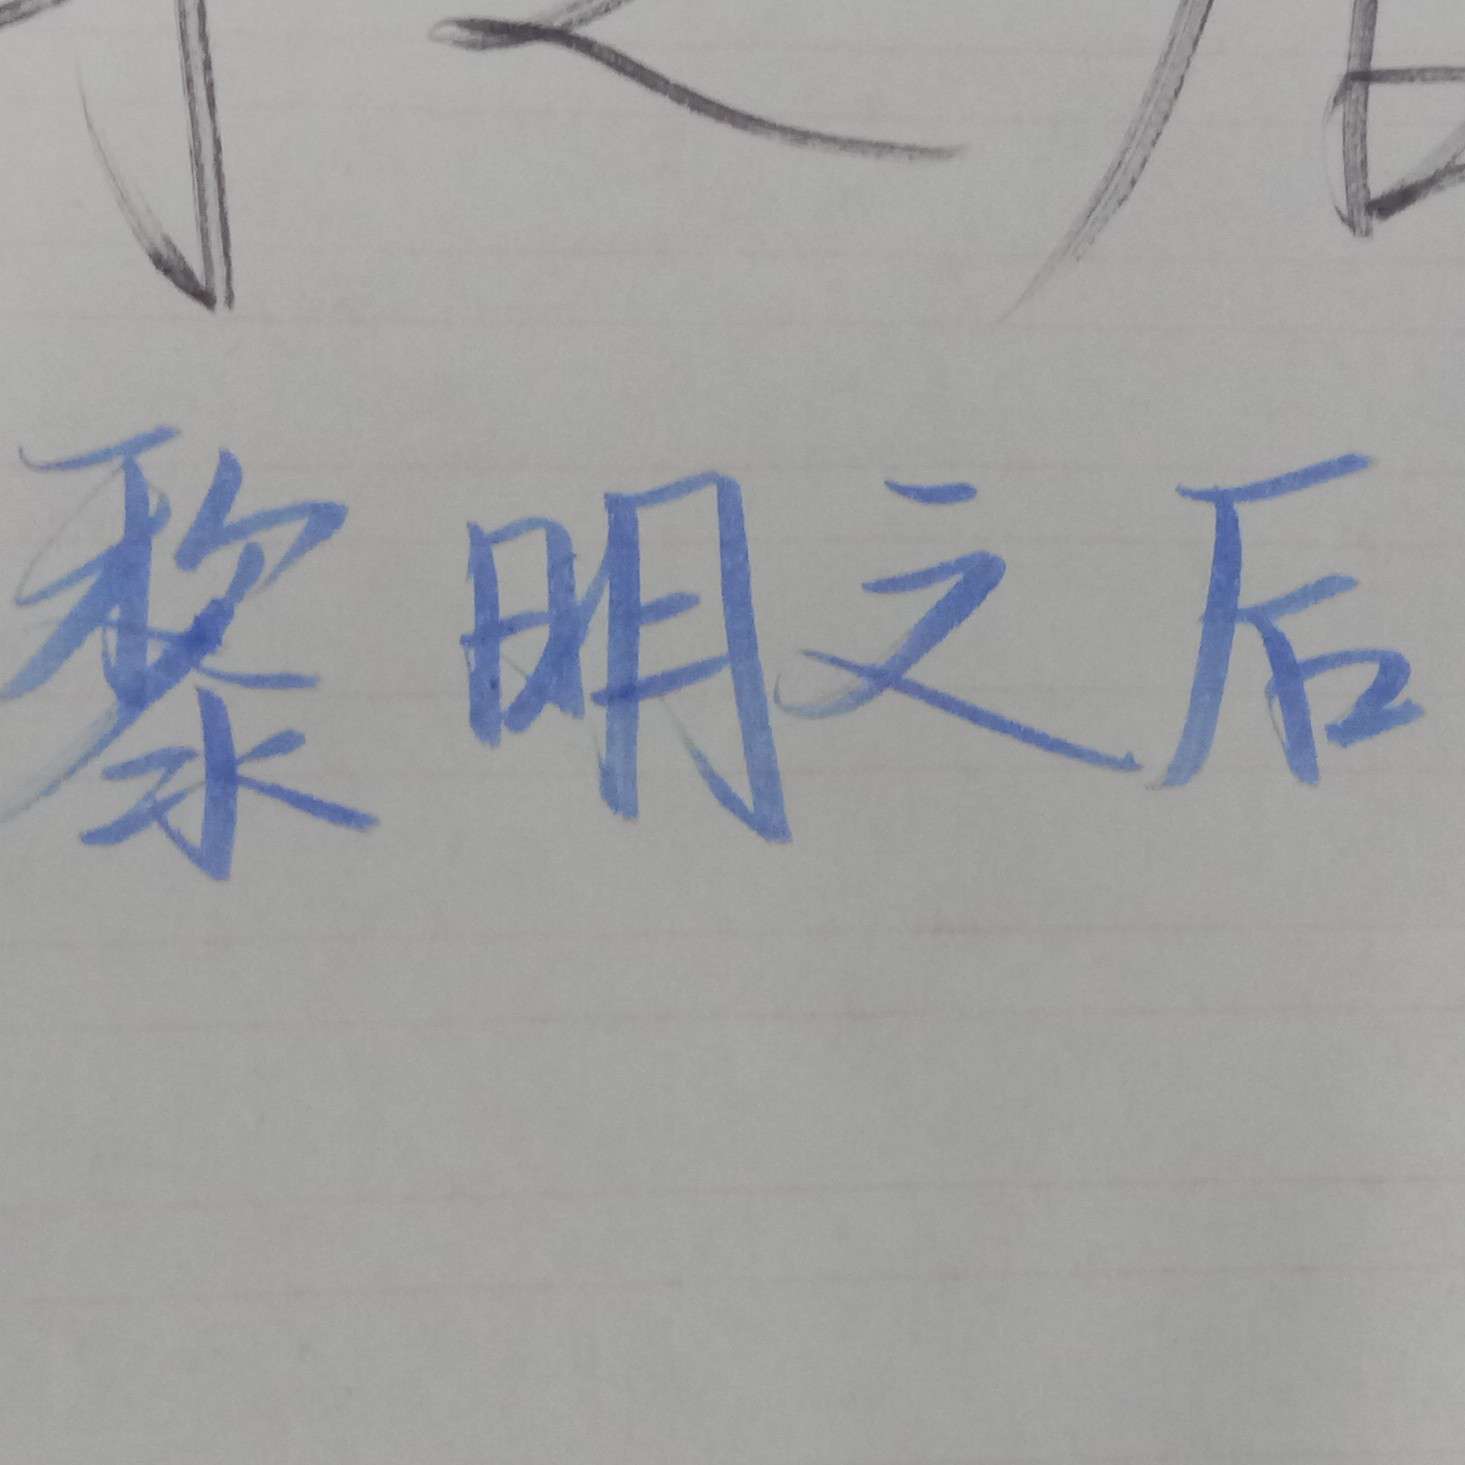 黎明之后